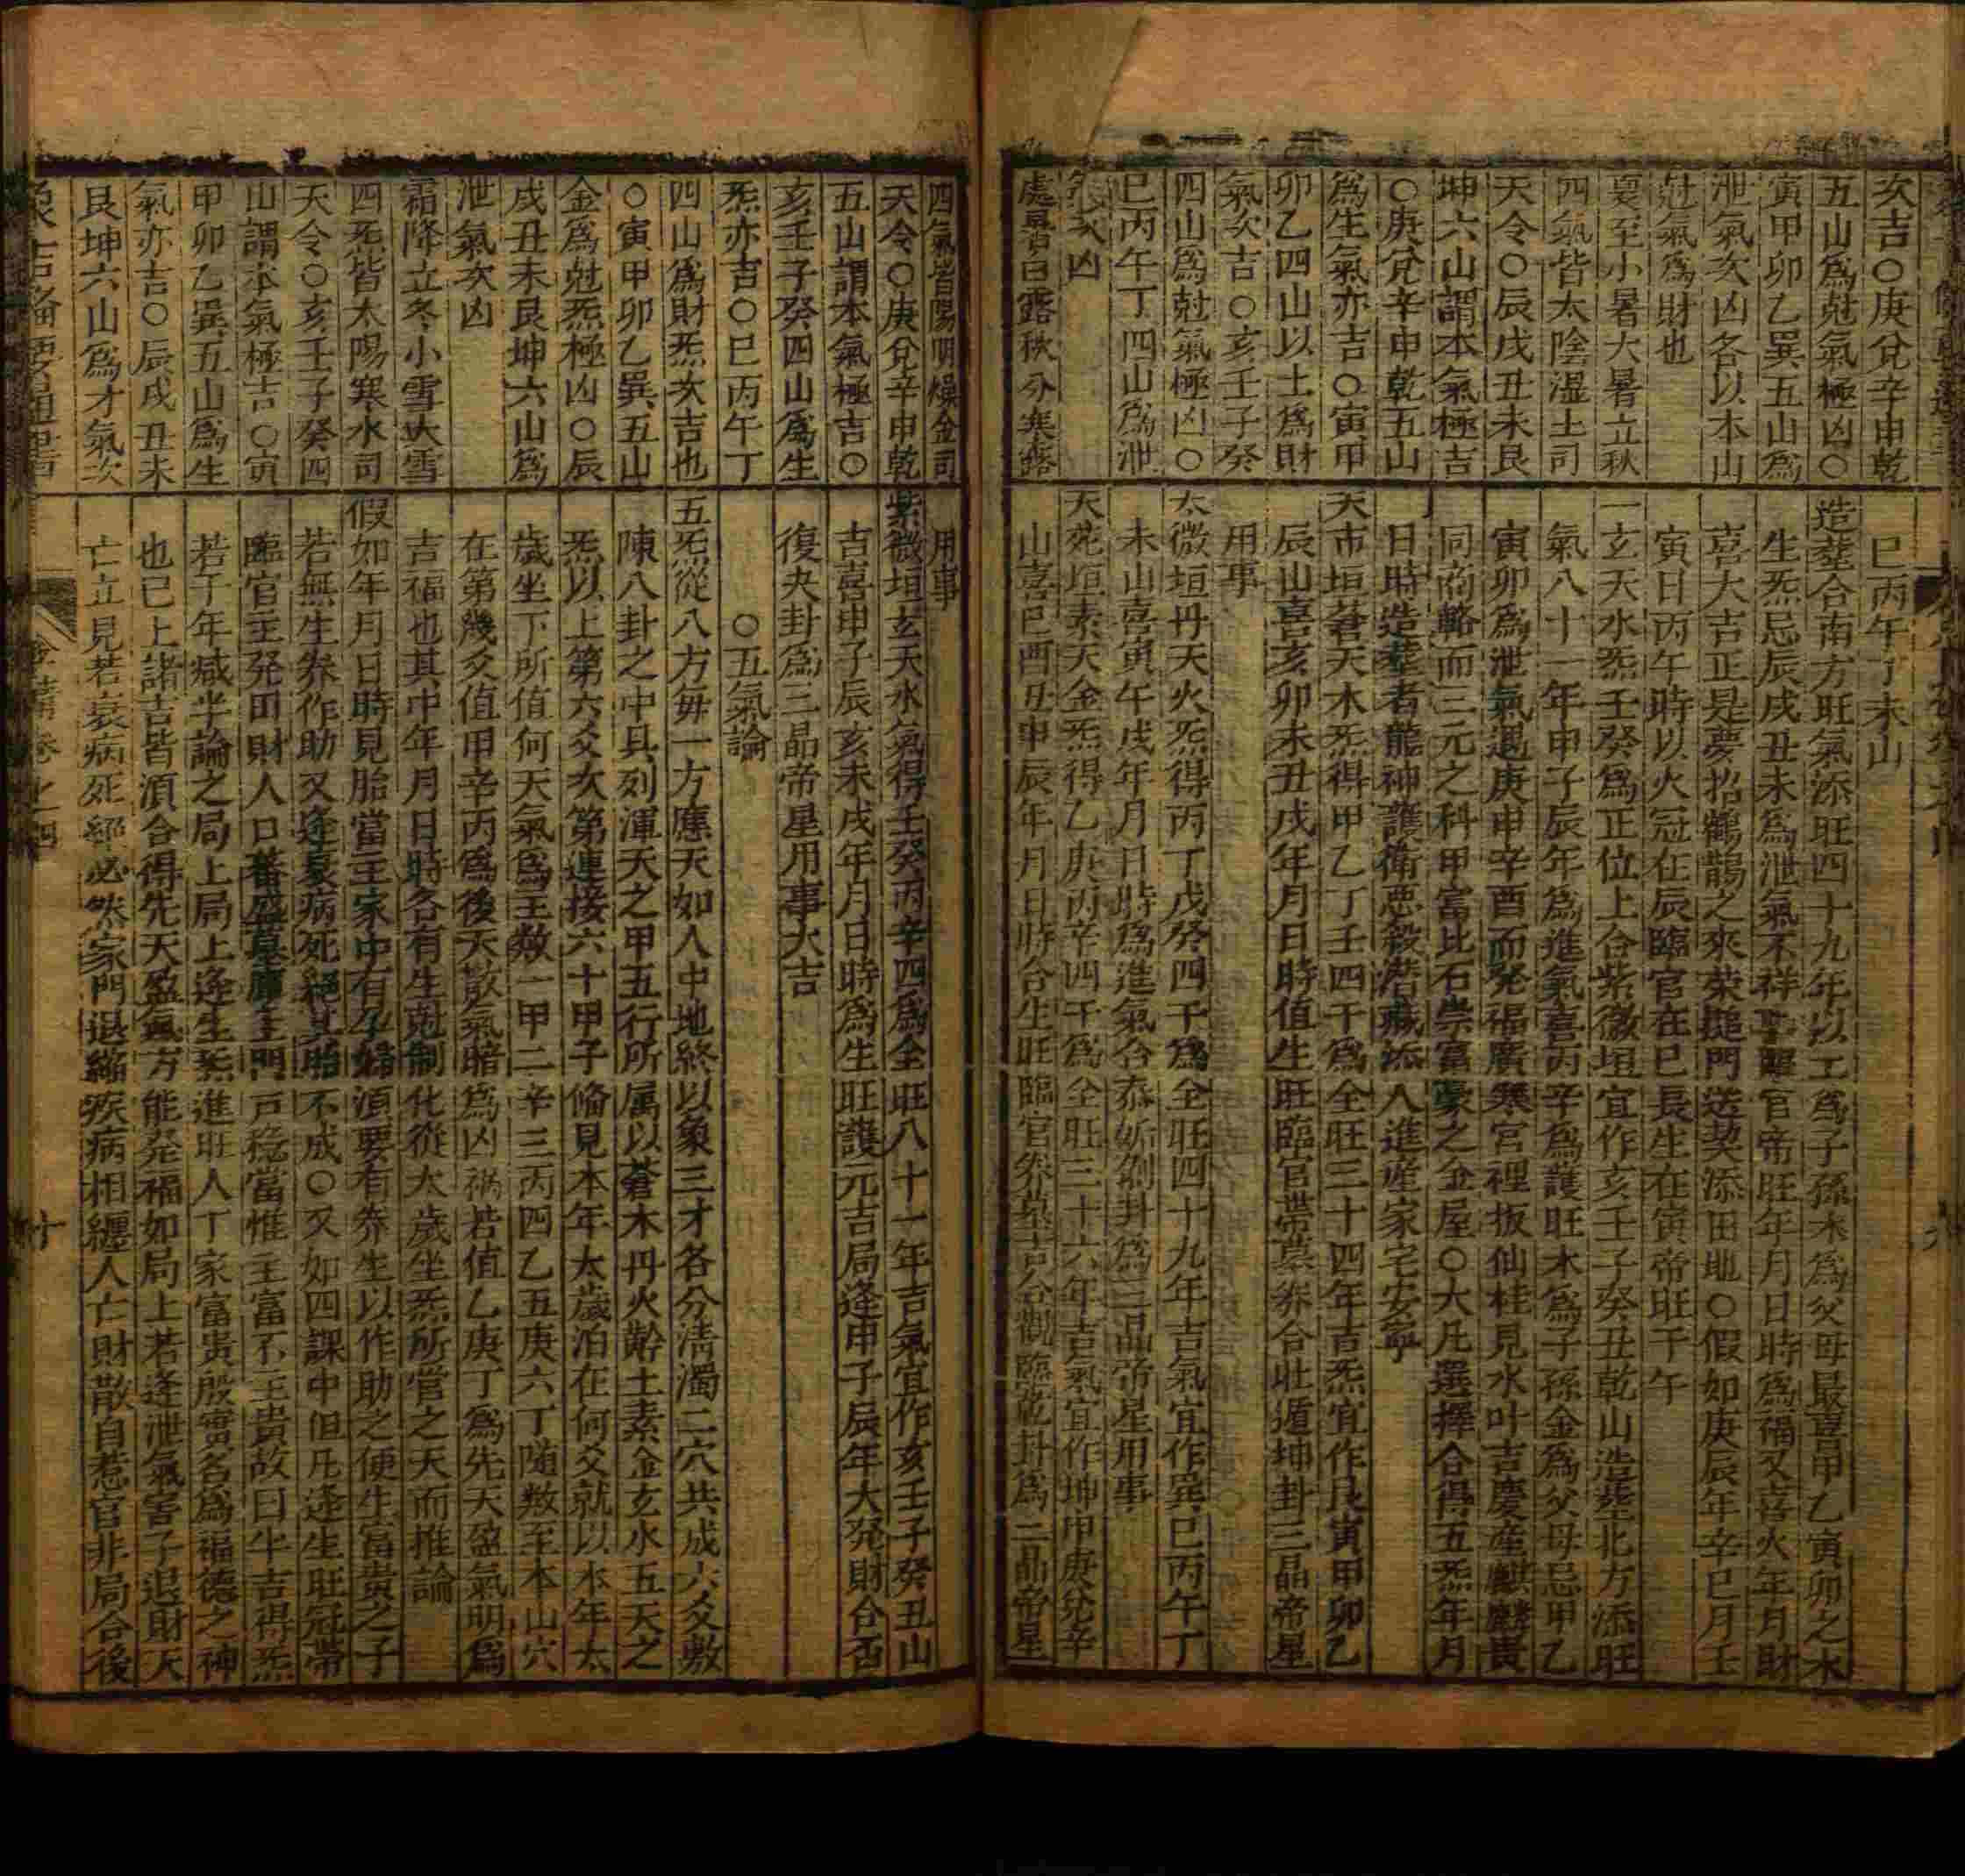 次吉〇庚兌辛申乾
五山爲尅氣極凶〇
寅甲卯乙巽五山爲
泄氣次凶各以本山
尅氣爲財也
夏至小暑大暑立秋
四氣皆太陰湿土司
天令〇辰戌丑未艮
坤六山謂本氣極吉
〇庚兌辛申乾五山
爲生氣亦吉〇寅甲
卯乙四山以土爲財
氣次吉〇亥壬子癸
四山爲尅氣極凶〇
巳丙午丁四山爲泄
氣次凶
處暑白露秋分寒露
巳丙午丁未山
造塟合南方旺氣添旺四十九年以工爲子孫木爲父母最喜甲乙寅卯之木
生炁忌辰戌丑未爲泄氣不祥官帝旺年月日時爲福又喜火年月財
喜大吉正是夢招鶴鵲之來荣搥門送契添田地〇假如庚辰年辛巳月壬
寅日丙午時以火冠在辰臨官在巳長生在寅帝旺于午
一玄天水炁壬癸爲正位上合紫微垣宜作亥壬子癸丑乾山浩塟北方添旺
氣八十一年申子辰年爲進氣喜丙辛爲護旺木爲子孫金爲父母忌甲乙
寅卯爲泄氣遇庚申辛酉而発福廣寒宮裡扳仙桂見水叶吉慶産麒麟貴
同商輅而三元之科甲富比石崇富豪之金屋〇大凡選擇合得五炁年月
日時造塟者龍神護衛悪殺潜藏添人進産家宅安寧
天市垣蒼天木炁得甲乙丁壬四干爲全旺三十四年吉炁宜作艮寅甲卯乙
辰山喜亥卯未丑戌年月日時值生旺臨官帶墓养合壮遁坤卦三晶帝星
用事
太微垣丹天火炁得丙丁戊癸四干爲全旺四十九年吉氣宜作巽巳丙午丁
未山喜寅午戌年月日時爲進氣合泰姤剝卦爲三晶帝星用事
天苑垣素天金炁得乙庚丙辛四干爲全旺三十六年吉氣宜作坤申庚兌辛
山喜巳酉丑申辰年月日時合生旺臨官养墓吉合觀臨乾卦爲三晶帝星
四氣皆陽明燥金司
天令〇庚兌辛申乾
五山謂本氣極吉〇
亥壬子癸四山爲生
炁亦吉〇巳丙午丁
四山爲財炁次吉也
〇寅甲卯乙巽五山
金爲尅炁極凶〇辰
戌丑未艮坤六山爲
泄氣次凶
霜降立冬小雪大雪
四炁皆太陽寒水司
天令〇亥壬子癸四
山謂本氣極吉〇寅
甲卯乙巽五山爲生
氣亦吉〇辰戌丑未
艮坤六山爲才氣次
用事
紫微垣玄天水氣得壬癸丙辛四爲全旺八十一年吉氣宜作亥壬子癸丑山
吉喜申子辰亥未戌年月日時爲生旺護元吉局逢甲子辰年大発財合否
復夬卦爲三晶帝星用事大吉
〇五氣論
五炁從八方毎一方應天如人中地終以象三才各分淸濁二穴共成六爻敷
陳八卦之中具列渾天之甲五行所属以蒼木丹火黅土素金玄水五天之
炁以上第六爻次第連接六十甲子俻見本年太歲泊在何爻就以本年太
歲坐下所值何天氣爲主数一甲二辛三丙四乙五庚六丁随数至本山穴
在第幾爻值甲辛丙爲後天散氣暗爲凶祸若值乙庚丁爲先天盈氣明爲
吉福也其中年月日時各有生尅制化從太歲坐炁所管之天而推論
假如年月日時見胎當主家中有孕婦須要有养生以作助之便生富貴之子
若無生养作助又逢衰病死絕其胎不成〇又如四課中但凡逢生旺冠帶
臨官主発田財人口蕃盛墓庫主門戸稳當惟主富不主貴故曰半吉得炁
若干年减半論之局上局上逢生炁進旺人丁家富貴殷實名爲福德之神
也已上諸吉皆湏合得先天盈氣方能発福如局上若逢泄氣害子退財天
亡立見若衰病死絕必然家門退縮疾病相纏人亡財散自惹官非局合後
十